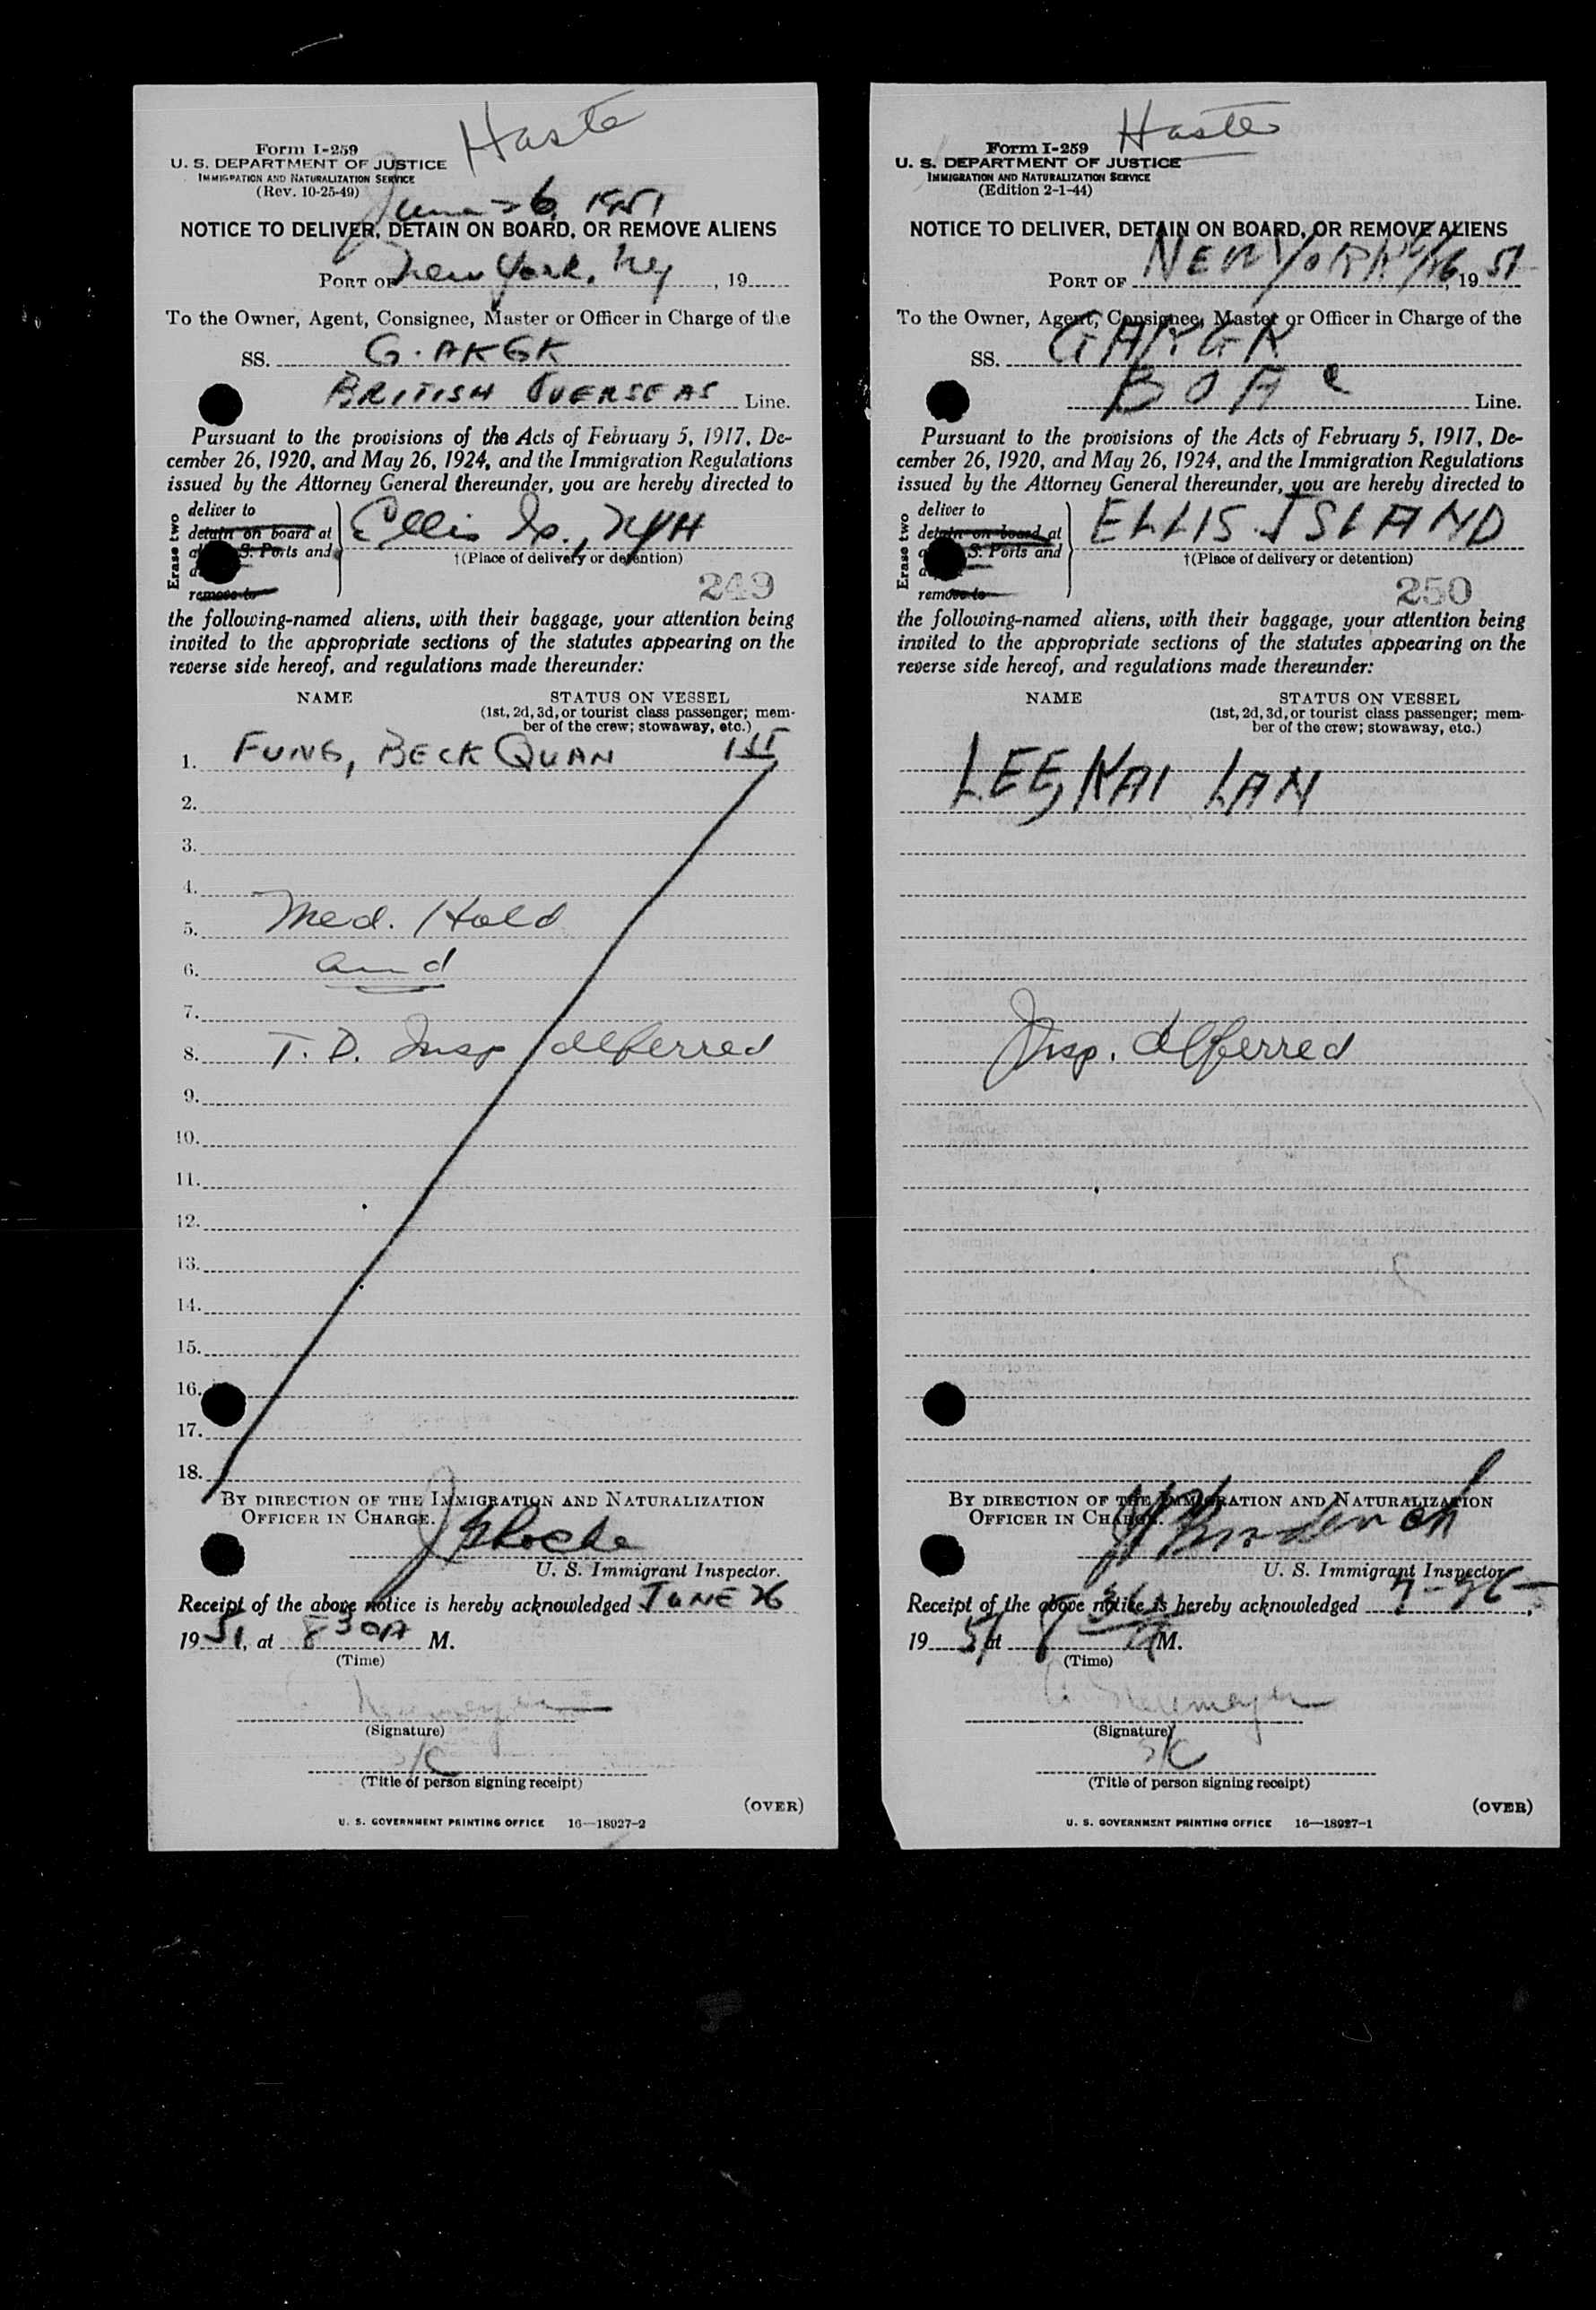 Haste
Form I-259
U. S. DEPARTMENT OF JUSTICE
IMMIGRATION AND NATURALIZATION SERVICE
(Rev. 10-25-49)
June 26, 1951
NOTICE TO DELIVER, DETAIN ON BOARD, OR REMOVE ALIENS
PORT OF New York, NY, 19
To the Owner, Agent, Consignee, Master or Officer in Charge of the
SS. G. AKGK
BRITISH OVERSEAS Line.
Pursuant to the provisions of the Acts of February 5, 1917, De-
cember 26, 1920, and May 26, 1924, and the Immigration Regulations
issued by the Attorney General thereunder, you are hereby directed to
Erase two
deliver to
detain on board at
S. Ports and
remove to
Ellis Is., NYH
†(Place of delivery or detention)
249
the following-named aliens, with their baggage, your attention being
invited to the appropriate sections of the statutes appearing on the
reverse side hereof, and regulations made thereunder:
NAME STATUS ON VESSEL
(1st, 2d, 3d, or tourist class passenger; mem-
ber of the crew; stowaway, etc.)
1. FUNG, BECK QUAN 1ST
2.
3.
4.
5. Med. Hold
6. and
7.
8. T. D. Insp deferred
9.
10.
11.
12.
13.
14.
15.
16.
17.
18.
BY DIRECTION OF THE IMMIGRATION AND NATURALIZATION
OFFICER IN CHARGE.
U. S. Immigrant Inspector.
Receipt of the above notice is hereby acknowledged JUNE 26
19 51, at 8 30A M.
(Time)
(Signature)
S/C
(Title of person signing receipt)
(OVER)
U. S. GOVERNMENT PRINTING OFFICE 16—18927-2
Haste
Form I-259
U. S. DEPARTMENT OF JUSTICE
IMMIGRATION AND NATURALIZATION SERVICE
(Edition 2-1-44)
NOTICE TO DELIVER, DETAIN ON BOARD, OR REMOVE ALIENS
PORT OF NEW YORK 6/26, 19 51
To the Owner, Agent, Consignee, Master or Officer in Charge of the
SS. GAKGK
BOAC Line.
Pursuant to the provisions of the Acts of February 5, 1917, De-
cember 26, 1920, and May 26, 1924, and the Immigration Regulations
issued by the Attorney General thereunder, you are hereby directed to
Erase two
deliver to
detain on board at
S. Ports and
remove to
ELLIS ISLAND
†(Place of delivery or detention)
250
the following-named aliens, with their baggage, your attention being
invited to the appropriate sections of the statutes appearing on the
reverse side hereof, and regulations made thereunder:
NAME STATUS ON VESSEL
(1st, 2d, 3d, or tourist class passenger; mem-
ber of the crew; stowaway, etc.)
LEE, KAI LAN
Insp. deferred
BY DIRECTION OF THE IMMIGRATION AND NATURALIZATION
OFFICER IN CHARGE.
U. S. Immigrant Inspector.
Receipt of the above notice is hereby acknowledged
19 51 at 8 M.
(Time)
(Signature)
S/C
(Title of person signing receipt)
(OVER)
U. S. GOVERNMENT PRINTING OFFICE 16—18927-1